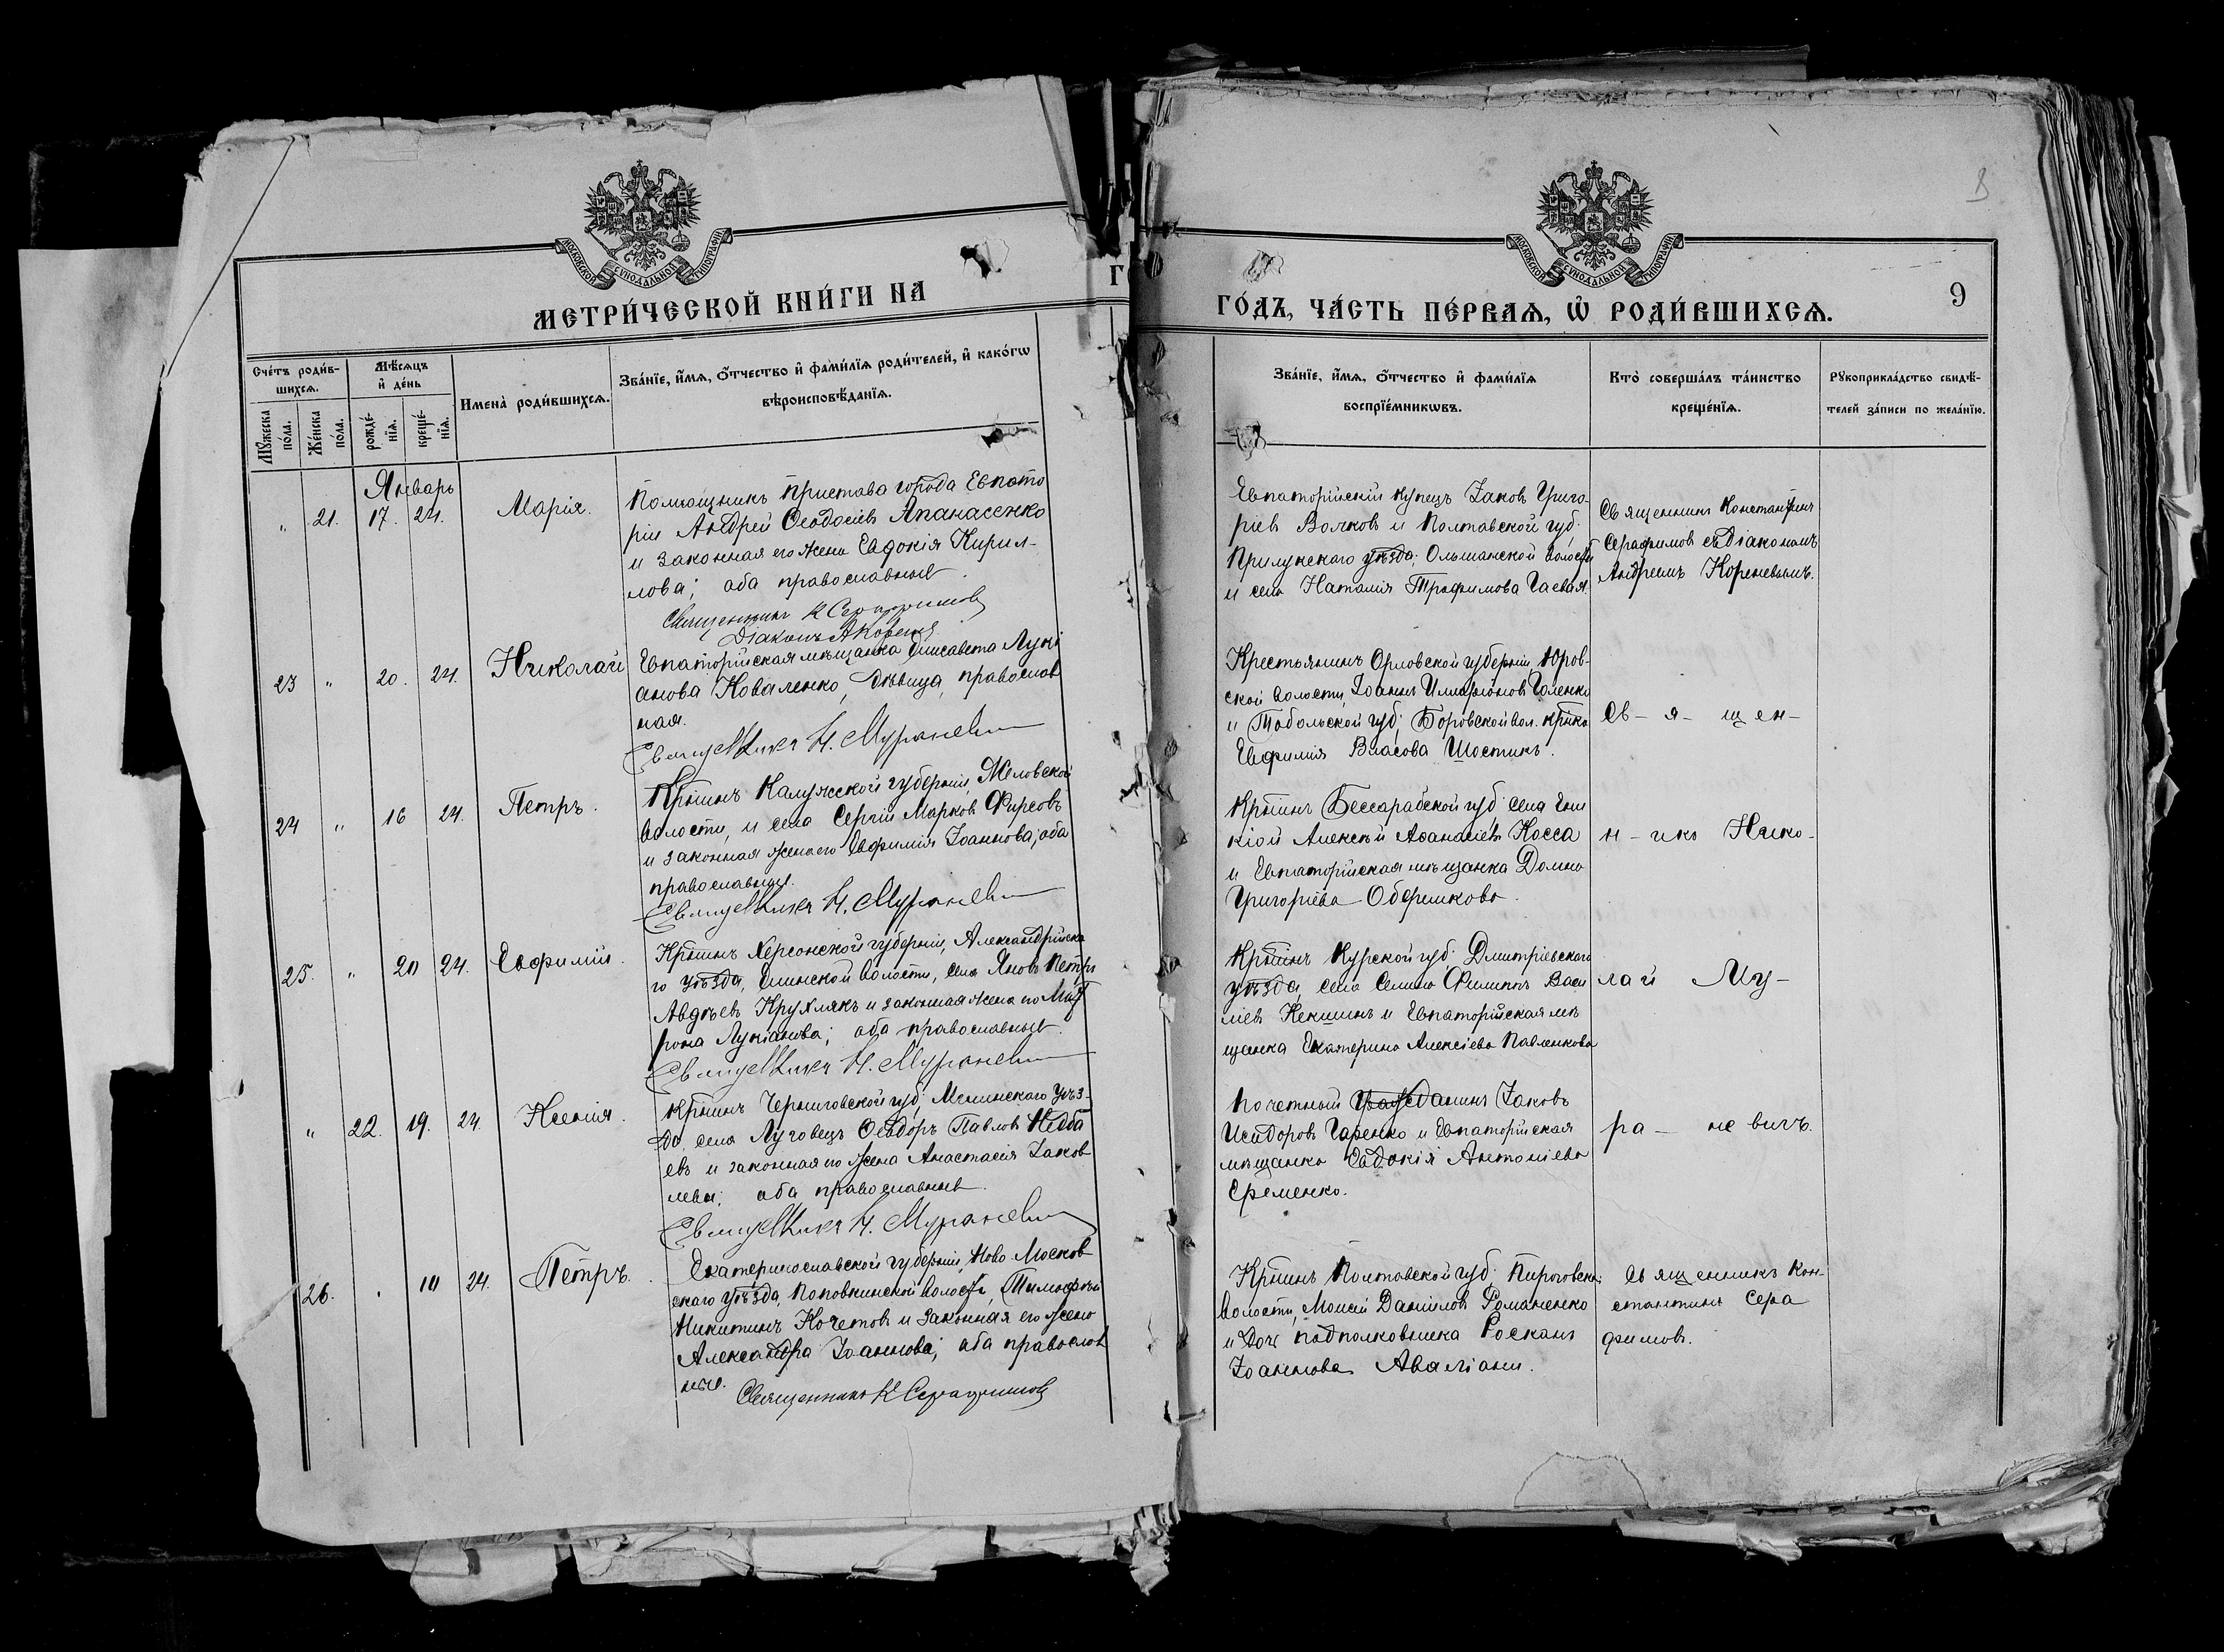 МОСКОВСКОЙ СУНОДАЛЬНОЙ ТИПОГРАФІИ
МЕТРИ́ЧЕСКОЙ КНИ́ГИ НА
Счéтъ роди́в-
шихсѧ.
Мѣ́сѧцъ
и҆ дéнь
Имена̀ роди́вшихсѧ.
Звáнїе, и҆́мѧ, ѻ҆́тчество и҆ фами́лїѧ роди́телей, и҆ какóгѡ
вѣроисповѣ́данїѧ.
Мꙋ́жеска
пóла.
Жéнска
пóла.
рождé-
нїѧ.
крещé-
нїѧ.
Январь
" 21. 17. 24. Марія.
Помощникъ пристава города Евпато
ріи Андрей Ѳеодосіевъ Апанасенко
и законная его жена Евдокія Кирил-
лова; оба православные.
Священникъ К Серафимовъ
Діаконъ А Кореневъ
23 " 20. 24. Николай
Евпаторійская мѣщанка Елисавета Лукі
анова Коваленко, дѣвица, православ
ная.
Священникъ Н. Мураневичъ
24 " 16 24. Петръ.
Кр̃тинъ Калужской губерніи, Меловской
волости, и села Сергій Марковъ Фирсовъ
и законная жена его Евфимія Іоаннова; оба
православные.
Священникъ Н. Мураневичъ
25. " 20 24. Евфимій.
Кр̃тинъ Херсонской губерніи, Александрійска
го уѣзда, Елинской волости, села Яновъ Петръ
Авдѣевъ Крухлякъ и законная жена его Мат
рона Лукіанова; оба православные.
Священникъ Н. Мураневичъ
" 22. 19. 24. Ксенія.
Кр̃тинъ Черниговской губ. Мглинскаго уѣз-
да, села Луговецъ Ѳеодоръ Павловъ Недба
евъ и законная его жена Анастасія Іаков
лева; оба православные.
Священникъ Н. Мураневичъ
26. . 10 24. Петръ.
Екатеринославской губерніи, Ново Москов
скаго уѣзда, Поповкинской волости, Тимофей
Никитинъ Кочетовъ и законная его жена
Александра Іоаннова; оба православ
ные.
Священникъ К Серафимовъ
9
МОСКОВСКОЙ СУНОДАЛЬНОЙ ТИПОГРАФІИ
ГÓДЪ, ЧÁСТЬ ПÉРВАѦ, Ѡ҆ РОДИ́ВШИХСѦ.
Звáнїе, и҆́мѧ, ѻ҆́тчество и҆ фами́лїѧ
воспрїéмникѡвъ.
Кто̀ совершáлъ тáинство
крещéнїѧ.
Рꙋкоприклáдство свидѣ́-
телей зáписи по желáнїю.
Евпаторійскій купецъ Іаковъ Григо-
ріевъ Волковъ и Полтавской губ.
Прилукскаго уѣзда. Ольшанской волости
и села Наталія Трофимова Гаевая.
Священникъ Константинъ
Серафимовъ съ діакономъ
Андреемъ Кореневымъ.
Крестьянинъ Орловской губерніи, Юров-
ской волости, Іоаннъ Илларіоновъ Голенко
и Тобольской губ. Боровской вол. кр̃тка
Евфимія Власова Шостинъ.
Св- я- щен-
Кр̃тинъ Бессарабской губ. села Ени
кіой Алексѣй Аѳанасіевъ Косса
и Евпаторійская мѣщанка Домна
Григоріева Оберишкова.
н - икъ Нико-
Кр̃тинъ Курской губ. Дмитріевскаго
уѣзда, села Селино Филиппъ Васи
ліевъ Кекшинъ и Евпаторійская мѣ
щанка Екатерина Алексіева Павленкова
лай Му-
Почетный Гражданинъ Іаковъ
Исидоровъ Гаренко и Евпаторійская
мѣщанка Евдокія Антоніева
Еременко.
ра- невичъ.
Кр̃тинъ Полтавской губ. Пироговской
волости, Моисей Даніиловъ Романенко
и дочь подполковника Росканъ
Іоаннова Аваліани.
Священникъ Кон-
стантинъ Сера
фимовъ.